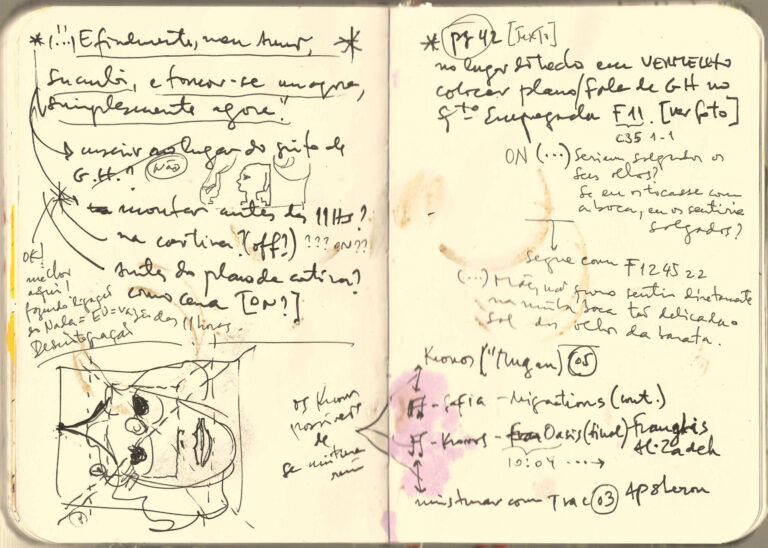 * (...) E finalmente, meu amor,
sucumbi, e tornou-se um agora,
simplesmente agora."
inserir no lugar do grito de
G.H." (não)
montar antes das 11 Hs?
na cortina? (off?) ??? ON??
antes do plano da cortina?
como cena [ON?]
OK!
melhor
aqui!
fazendo ligação
ao Nada = EU = vazio das 11 horas.
Desintegração
os Kronos
possíveis
de
se misturarem
* pg 42 [texto]
no lugar do lado em VERMELHO
colocar plano/fala de GH no
qto Empregada F11. [ver foto]
C35 1-1
ON (...) Seriam salgados os
seus olhos?
Se eu os tocasse com
a boca, eu os sentiria
salgados?
Segue com F1245 22
(...) Mas não quero sentir diretamente
na minha boca tão delicada o
sal dos olhos da barata.
Kronos ["Mugam] 05
- Sofia - Migrations (cont.)
- Kronos - Oasis (final) Franghis
Ali-Zadeh
10:04
misturar com Trac 03 Apsheron